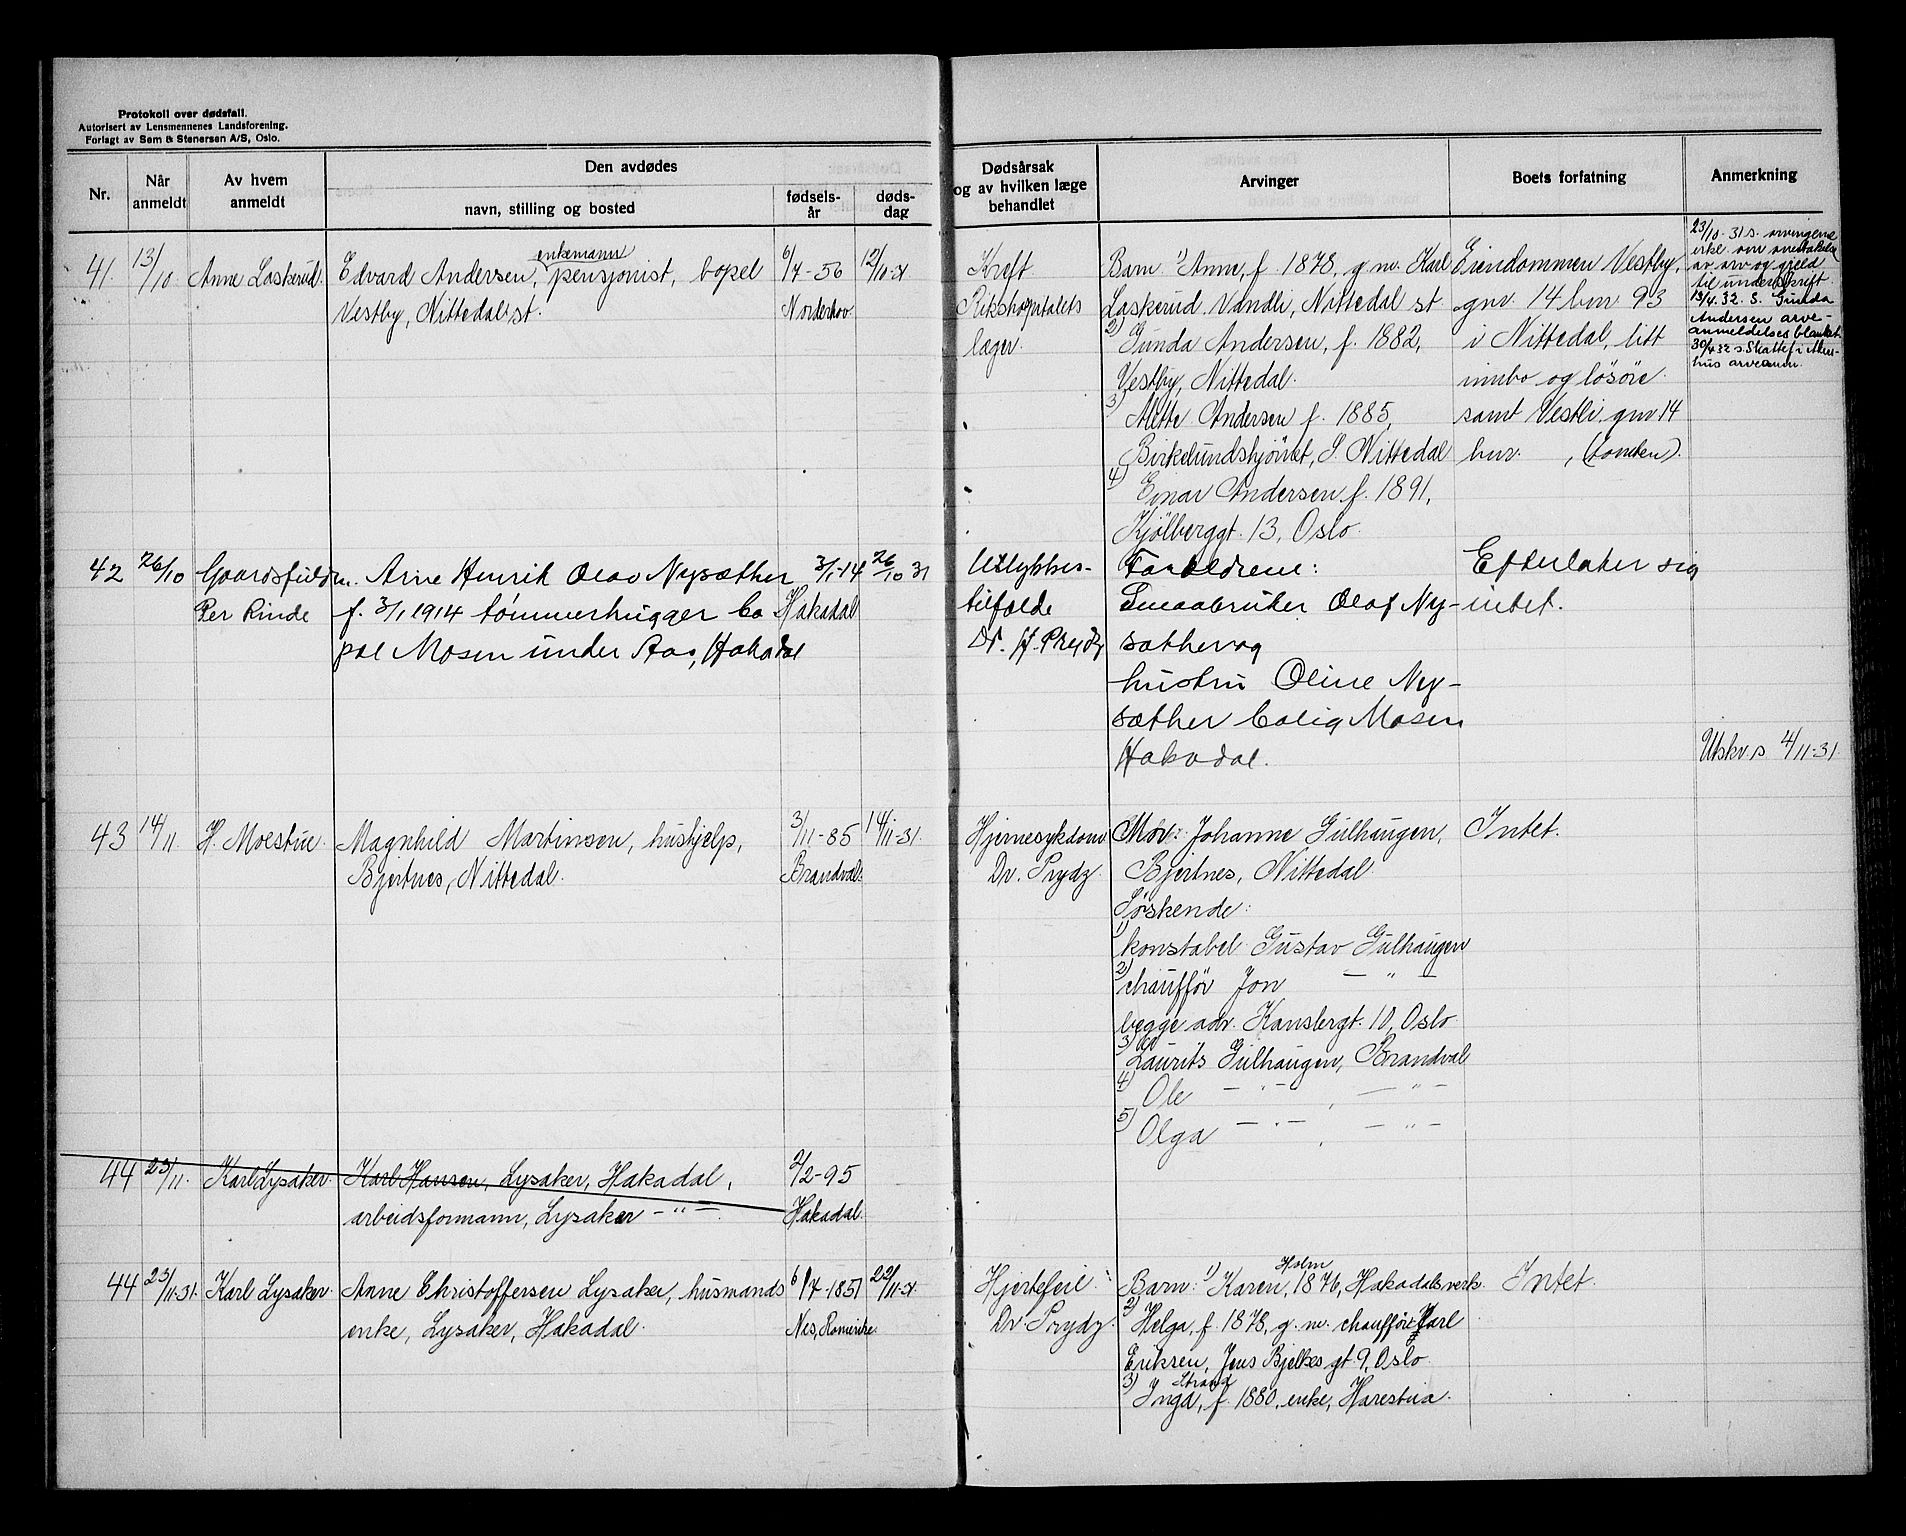 Protokoll over dødsfall.
Autorisert av Lensmennenes Landsforening.
Forlagt av Sem & Stenersen A/S, Oslo.
Nr.
Når anmeldt
Av hvem anmeldt
Den avdødes
navn, stilling og bosted
fødsels-år
døds-dag
Dødsårsak og av hvilken læge behandlet
Arvinger
Boets forfatning
Anmerkning
41. 13/10 Anne Laskerud. Edvard Andersen, enkemann pensjonist, bopel 6/4-56 12/10-31
Vestby, Nittedal st. Norderhov
Kreft
Rikshospitalets
læger.
Barn: 1) Anne, f. 1878, g.m. Karl
Laskerud. Vandli, Nittedal st
2) Gunda Andersen, f. 1882,
Vestby, Nittedal.
3) Mette Andersen f. 1885,
Birkelundshjörnet, S. Nittedal
4) Einar Andersen f. 1891,
Kjölberggt. 13, Oslo.
Eiendommen Vestby,
gnr. 14 bnr 93
i Nittedal, litt
innbo og lösöre
samt Vestli gnr 14
bnr. , (tomten).
23/10.31 s. arvingene
erkl. om overtakelse
av arv og gjeld
til underskrift
13/4.32. S. Gunda
Andersen arve-
anmeldelses blankt.
30/4 32 s. Skattef. i Akers-
hus arveanm.
42 26/10 Gaardsfuldm. Arne Henrik Olav Nysæther 3/1-14 26/10 31
Per Rinde f. 3/1 1914 tømmerhugger bo Hakadal
pæl Mosen under Aas, Hakadal
Ulykkes-
tilfælde
Dr. H. Prydz
Forældrene:
Smaabruker Olaf Ny-
sæther og
hustru Oline Ny-
sæther bolig Mosen
Hakadal.
Efterlater sig
intet.
Utskr. s. 4/11-31.
43 14/11 H. Moestue. Magnhild Martinsen, hushjelp, 3/11-85 14/11-31.
Bjertnes, Nittedal. Brandval.
Hjernesykdom
Dr. Prydz.
Mor: Johanne Gulhaugen,
Bjertnes, Nittedal.
Søskende:
1) konstabel Gustav Gulhaugen
2) chauffør Jon — " —
begge adr. Kanslergt. 10, Oslo
3) Laurits Gulhaugen, Brandval
4) Ole — " — , — " —
5) Olga — " — , — " —
Intet.
44 23/11. Karl Lysaker. Karl Hansen, Lysaker, Hakadal, 2/2-95
arbeidsformann, Lysaker — " —. Hakadal.
44 23/11-31. Karl Lysaker Anne Christoffersen Lysaker, husmands 6/7-1851 22/11-31
enke, Lysaker, Hakadal. Nes, Romerike
Hjertefeil
Dr. Prydz.
Barn: 1) Karen, Holm 1876, Hakadalsverk.
2) Helga, f. 1878, g.m. chauffør Karl
Eriksen, Jens Bjelkes gt. 9, Oslo
3) Inga, Strand f. 1880, enke, Harestua.
Intet.